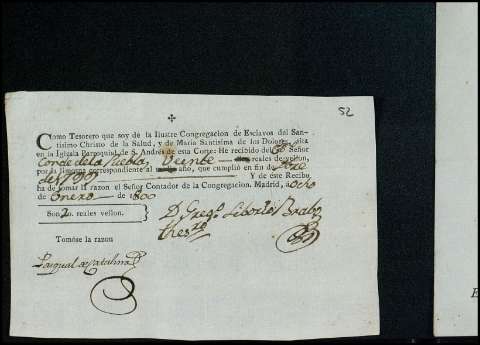 52
✠
Como Tesorero que soy de la Ilustre Congregacion de Esclavos del San-
tísimo Christo de la Salud, y de María Santísima de los Dolores, sita
en la Iglesia Parroquial de S. Andrés de esta Corte: He recibido del Señor
Conde de la Puebla, Veinte reales de vellon,
por la limosna correspondiente al año, que cumplió en fin de
de 1799 Y de este Recibo
ha de tomar la razon el Señor Contador de la Congregacion. Madrid, a ocho
de Enero de 1800
Son 20 reales vellon.
D. Greg.º Liborio
thes.ro
Tomóse la razon
Pasqual de Catalina